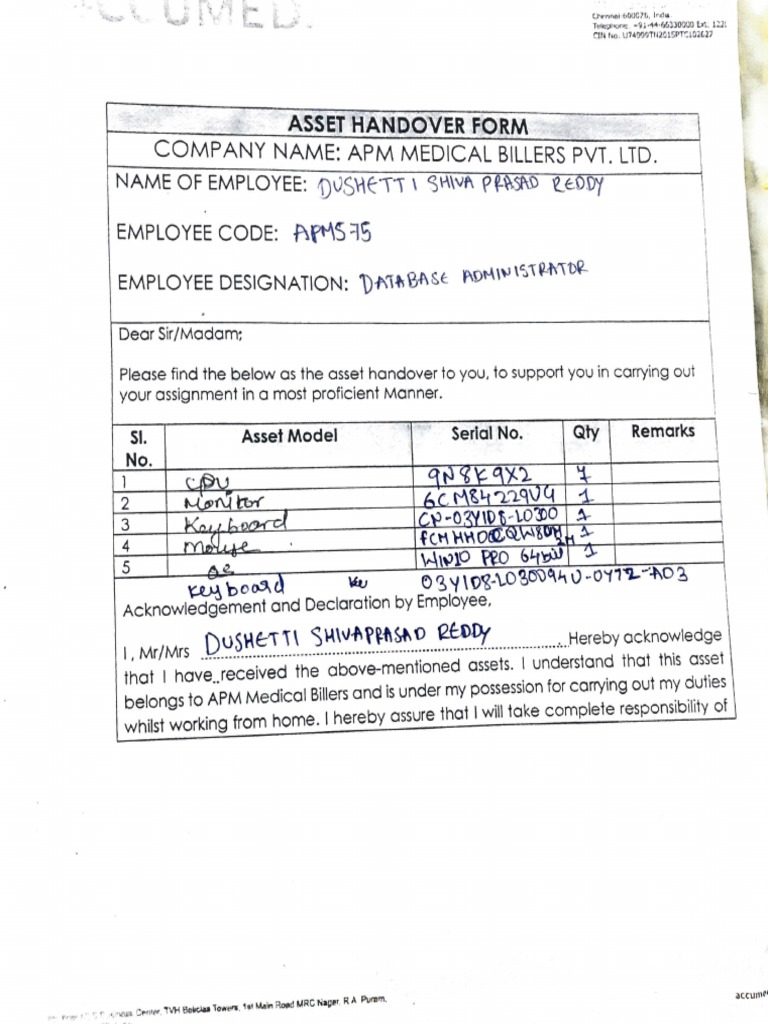 ACCUMED.
Chennai 600076, India
Telephone: +91-44-66330000 Ext. 122
CIN No. U74999TN2015PTC102627
ASSET HANDOVER FORM
COMPANY NAME: APM MEDICAL BILLERS PVT. LTD.
NAME OF EMPLOYEE: DUSHETTI SHIVA PRASAD REDDY
EMPLOYEE CODE: APMS75
EMPLOYEE DESIGNATION: DATABASE ADMINISTRATOR
Dear Sir/Madam;
Please find the below as the asset handover to you, to support you in carrying out
your assignment in a most proficient Manner.
Sl. No. Asset Model Serial No. Qty Remarks
1 CPU 9N8K9X2 1
2 Monitor 6CM84229VG 1
3 Keyboard CN-03Y1D8-L0300 1
4 Mouse 1
5 OS WIN10 PRO 64bit 1
Keyboard 03Y1D8-L030094U-0472-A03
Acknowledgement and Declaration by Employee.
I, Mr/Mrs DUSHETTI SHIVAPRASAD REDDY Hereby acknowledge
that I have..received the above-mentioned assets. I understand that this asset
belongs to APM Medical Billers and is under my possession for carrying out my duties
whilst working from home. I hereby assure that I will take complete responsibility of
Center, TVH Beliciaa Towers, 1st Main Road MRC Nagar, R.A. Puram,
accume